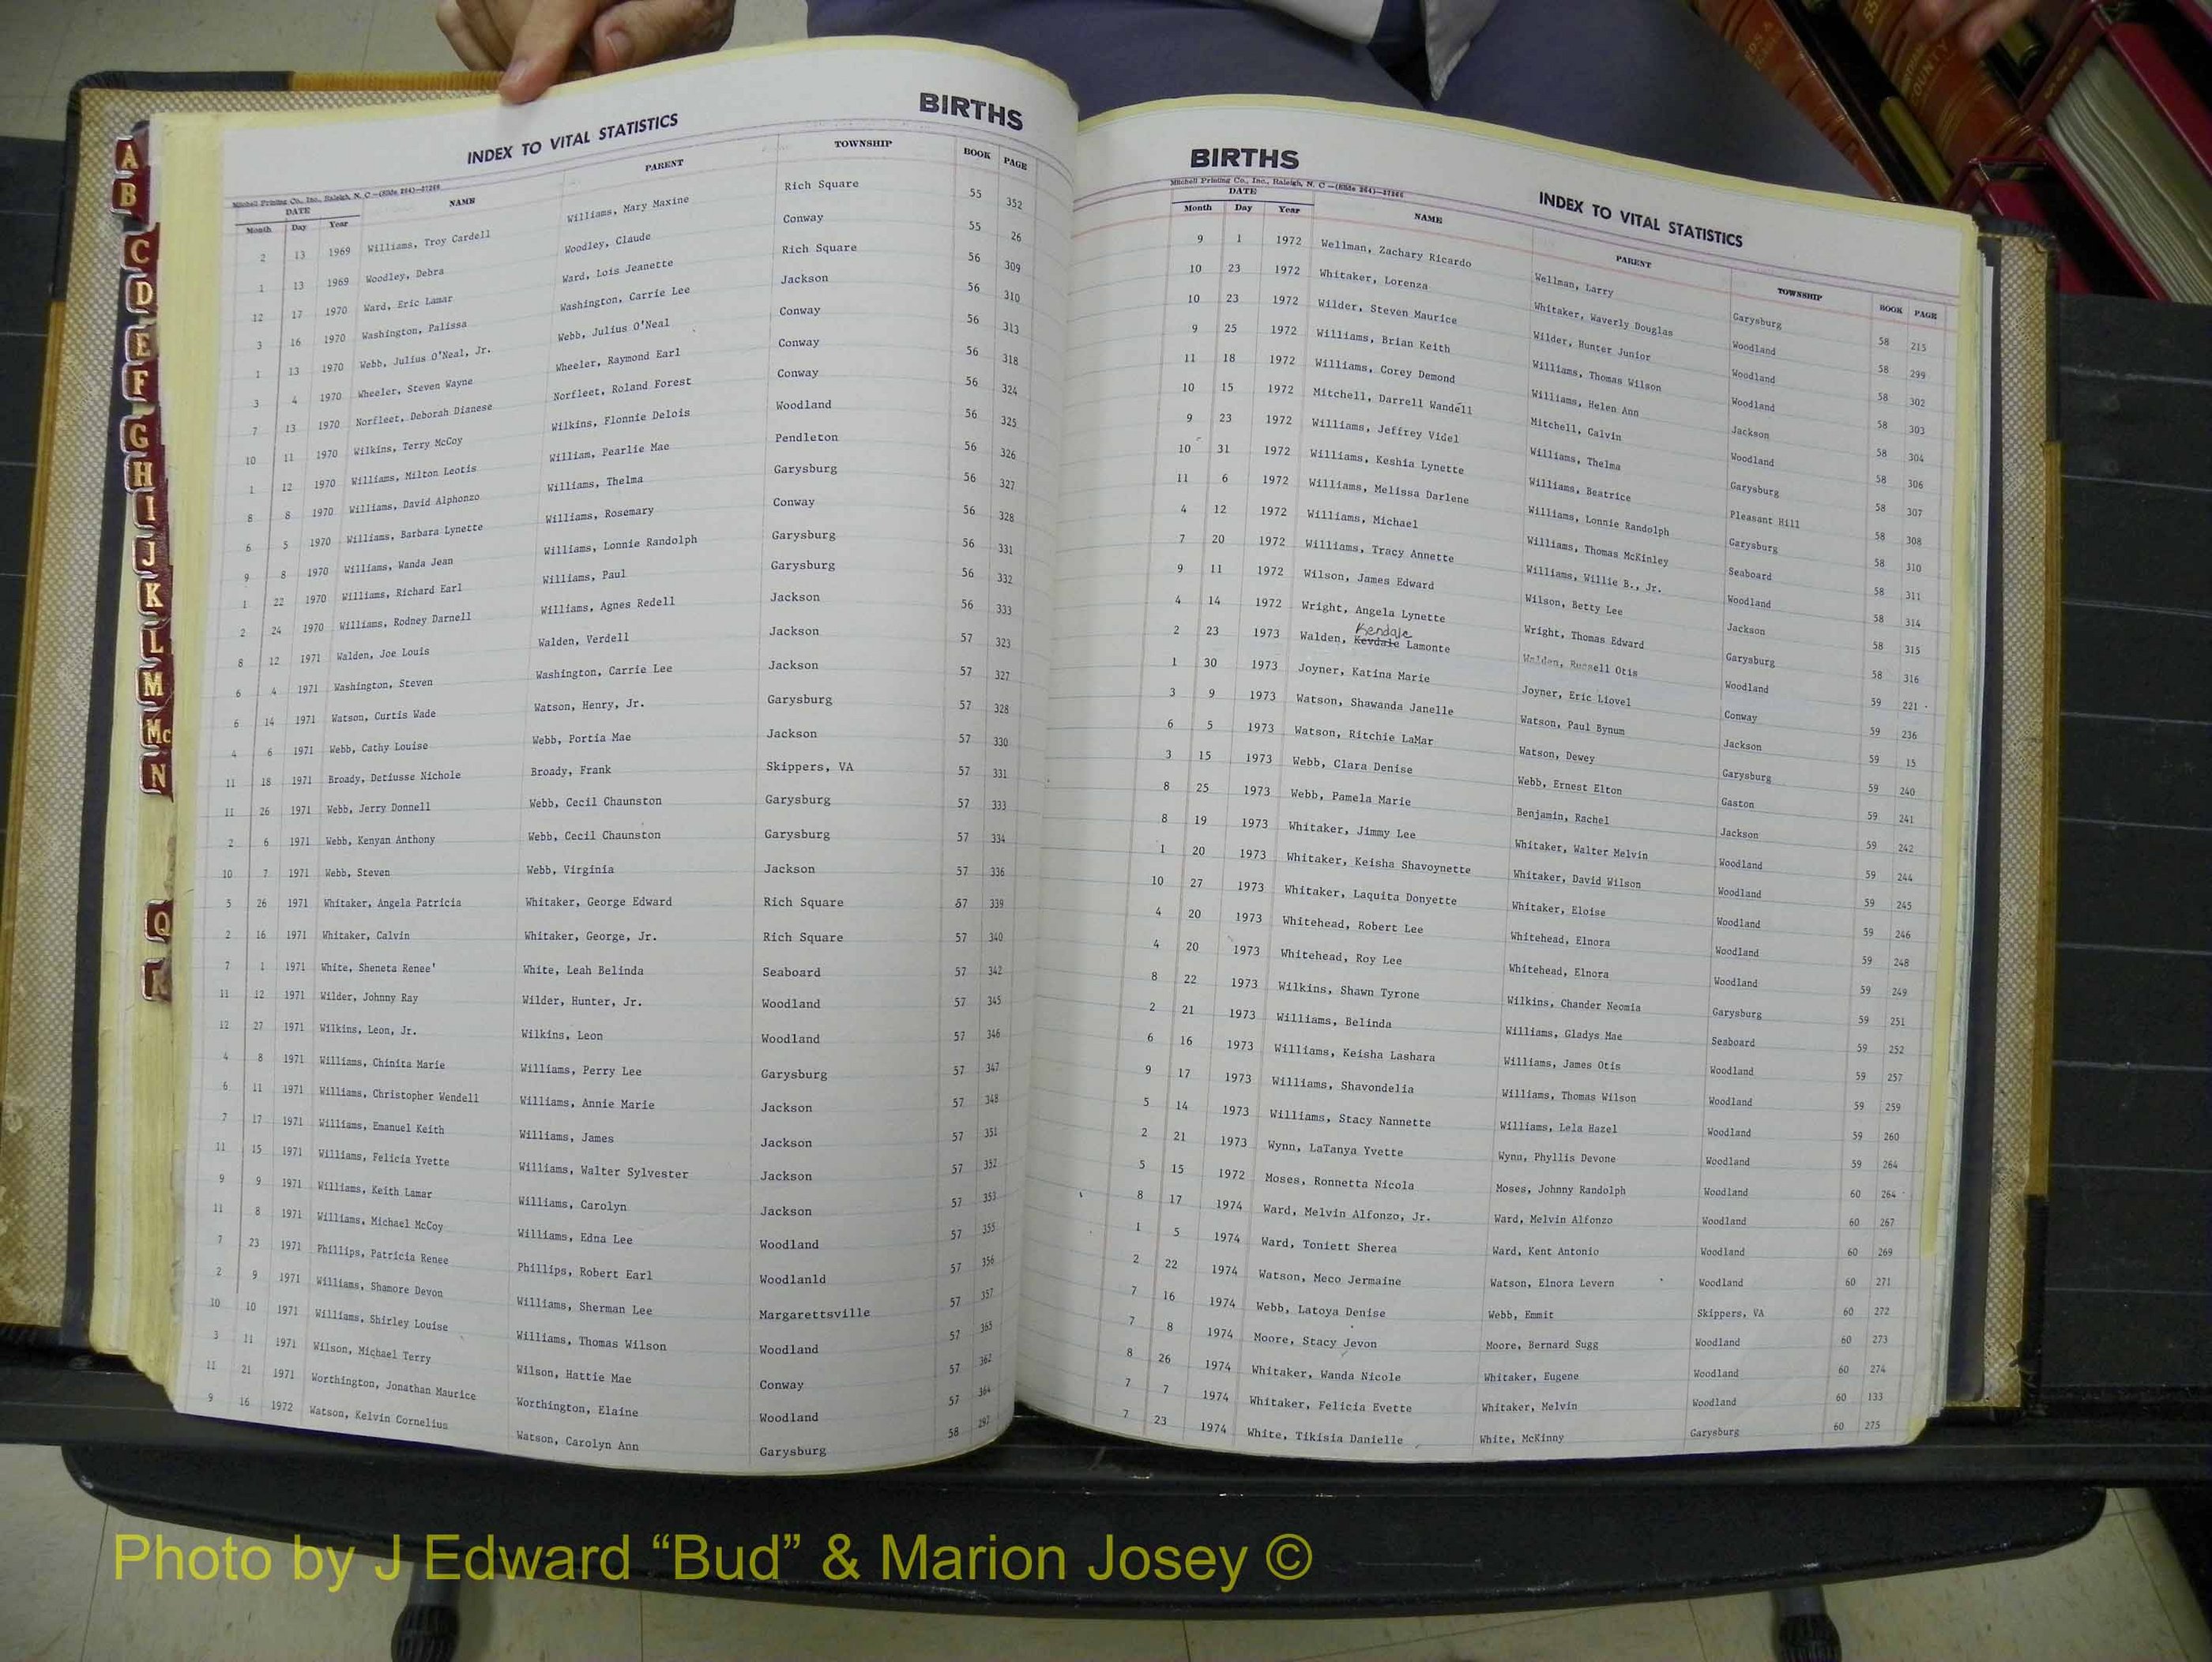 BIRTHS
INDEX TO VITAL STATISTICS
Mitchell Printing Co., Inc., Raleigh, N. C.
DATE NAME PARENT TOWNSHIP BOOK PAGE
Month Day Year
2 13 1969 Williams, Troy Cardell Williams, Mary Maxine Rich Square 55 352
1 13 1969 Woodley, Debra Woodley, Claude Conway 55 26
12 17 1970 Ward, Eric Lamar Ward, Lois Jeanette Rich Square 56 309
3 16 1970 Washington, Palissa Washington, Carrie Lee Jackson 56 310
1 13 1970 Webb, Julius O'Neal, Jr. Webb, Julius O'Neal Conway 56 313
3 4 1970 Wheeler, Steven Wayne Wheeler, Raymond Earl Conway 56 318
7 13 1970 Norfleet, Deborah Dianese Norfleet, Roland Forest Conway 56 324
10 11 1970 Wilkins, Terry McCoy Wilkins, Flonnie Delois Woodland 56 325
1 12 1970 Williams, Milton Leotis William, Pearlie Mae Pendleton 56 326
8 8 1970 Williams, David Alphonzo Williams, Thelma Garysburg 56 327
6 5 1970 Williams, Barbara Lynette Williams, Rosemary Conway 56 328
9 8 1970 Williams, Wanda Jean Williams, Lonnie Randolph Garysburg 56 331
1 22 1970 Williams, Richard Earl Williams, Paul Garysburg 56 332
2 24 1970 Williams, Rodney Darnell Williams, Agnes Redell Jackson 56 333
8 12 1971 Walden, Joe Louis Walden, Verdell Jackson 57 323
6 4 1971 Washington, Steven Washington, Carrie Lee Jackson 57 327
6 14 1971 Watson, Curtis Wade Watson, Henry, Jr. Garysburg 57 328
4 6 1971 Webb, Cathy Louise Webb, Portia Mae Jackson 57 330
11 18 1971 Broady, Detiusse Nichole Broady, Frank Skippers, VA 57 331
11 26 1971 Webb, Jerry Donnell Webb, Cecil Chaunston Garysburg 57 333
2 6 1971 Webb, Kenyan Anthony Webb, Cecil Chaunston Garysburg 57 334
10 7 1971 Webb, Steven Webb, Virginia Jackson 57 336
5 26 1971 Whitaker, Angela Patricia Whitaker, George Edward Rich Square 57 339
2 16 1971 Whitaker, Calvin Whitaker, George, Jr. Rich Square 57 340
7 1 1971 White, Sheneta Renee' White, Leah Belinda Seaboard 57 342
11 12 1971 Wilder, Johnny Ray Wilder, Hunter, Jr. Woodland 57 345
12 27 1971 Wilkins, Leon, Jr. Wilkins, Leon Woodland 57 346
4 8 1971 Williams, Chinita Marie Williams, Perry Lee Garysburg 57 347
6 11 1971 Williams, Christopher Wendell Williams, Annie Marie Jackson 57 348
7 17 1971 Williams, Emanuel Keith Williams, James Jackson 57 351
11 15 1971 Williams, Felicia Yvette Williams, Walter Sylvester Jackson 57 352
9 9 1971 Williams, Keith Lamar Williams, Carolyn Jackson 57 353
11 8 1971 Williams, Michael McCoy Williams, Edna Lee Woodland 57 355
7 23 1971 Phillips, Patricia Renee Phillips, Robert Earl Woodlanld 57 356
2 9 1971 Williams, Shamore Devon Williams, Sherman Lee Margarettsville 57 357
10 10 1971 Williams, Shirley Louise Williams, Thomas Wilson Woodland 57 363
3 11 1971 Wilson, Michael Terry Wilson, Hattie Mae Conway 57 362
11 21 1971 Worthington, Jonathan Maurice Worthington, Elaine Woodland 57 364
9 16 1972 Watson, Kelvin Cornelius Watson, Carolyn Ann Garysburg 58 297
BIRTHS
INDEX TO VITAL STATISTICS
Mitchell Printing Co., Inc., Raleigh, N. C.
DATE NAME PARENT TOWNSHIP BOOK PAGE
Month Day Year
9 1 1972 Wellman, Zachary Ricardo Wellman, Larry Garysburg 58 215
10 23 1972 Whitaker, Lorenza Whitaker, Waverly Douglas Woodland 58 299
10 23 1972 Wilder, Steven Maurice Wilder, Hunter Junior Woodland 58 302
9 25 1972 Williams, Brian Keith Williams, Thomas Wilson Woodland 58 303
11 18 1972 Williams, Corey Demond Williams, Helen Ann Jackson 58 304
10 15 1972 Mitchell, Darrell Wandell Mitchell, Calvin Woodland 58 306
9 23 1972 Williams, Jeffrey Videl Williams, Thelma Garysburg 58 307
10 31 1972 Williams, Keshia Lynette Williams, Beatrice Pleasant Hill 58 308
11 6 1972 Williams, Melissa Darlene Williams, Lonnie Randolph Garysburg 58 310
4 12 1972 Williams, Michael Williams, Thomas McKinley Seaboard 58 311
7 20 1972 Williams, Tracy Annette Williams, Willie B., Jr. Woodland 58 314
9 11 1972 Wilson, James Edward Wilson, Betty Lee Jackson 58 315
4 14 1972 Wright, Angela Lynette Wright, Thomas Edward Garysburg 58 316
Kendale
2 23 1973 Walden, Kevdale Lamonte Walden, Russell Otis Woodland 59 221
1 30 1973 Joyner, Katina Marie Joyner, Eric Liovel Conway 59 236
3 9 1973 Watson, Shawanda Janelle Watson, Paul Bynum Jackson 59 15
6 5 1973 Watson, Ritchie LaMar Watson, Dewey Garysburg 59 240
3 15 1973 Webb, Clara Denise Webb, Ernest Elton Gaston 59 241
8 25 1973 Webb, Pamela Marie Benjamin, Rachel Jackson 59 242
8 19 1973 Whitaker, Jimmy Lee Whitaker, Walter Melvin Woodland 59 244
1 20 1973 Whitaker, Keisha Shavoynette Whitaker, David Wilson Woodland 59 245
10 27 1973 Whitaker, Laquita Donyette Whitaker, Eloise Woodland 59 246
4 20 1973 Whitehead, Robert Lee Whitehead, Elnora Woodland 59 248
4 20 1973 Whitehead, Roy Lee Whitehead, Elnora Woodland 59 249
8 22 1973 Wilkins, Shawn Tyrone Wilkins, Chander Neomia Garysburg 59 251
2 21 1973 Williams, Belinda Williams, Gladys Mae Seaboard 59 252
6 16 1973 Williams, Keisha Lashara Williams, James Otis Woodland 59 257
9 17 1973 Williams, Shavondelia Williams, Thomas Wilson Woodland 59 259
5 14 1973 Williams, Stacy Nannette Williams, Lela Hazel Woodland 59 260
2 21 1973 Wynn, LaTanya Yvette Wynn, Phyllis Devone Woodland 59 264
5 15 1972 Moses, Ronnetta Nicola Moses, Johnny Randolph Woodland 60 264
8 17 1974 Ward, Melvin Alfonzo, Jr. Ward, Melvin Alfonzo Woodland 60 267
1 5 1974 Ward, Toniett Sherea Ward, Kent Antonio Woodland 60 269
2 22 1974 Watson, Meco Jermaine Watson, Elnora Levern Woodland 60 271
7 16 1974 Webb, Latoya Denise Webb, Emmit Skippers, VA 60 272
7 8 1974 Moore, Stacy Jevon Moore, Bernard Sugg Woodland 60 273
8 26 1974 Whitaker, Wanda Nicole Whitaker, Eugene Woodland 60 274
7 7 1974 Whitaker, Felicia Evette Whitaker, Melvin Woodland 60 133
7 23 1974 White, Tikisia Danielle White, McKinny Garysburg 60 275
A
B
C
D
E
F
G
H
I
J
K
L
M
Mc
N
Q
COUNTY
Photo by J Edward “Bud” & Marion Josey ©